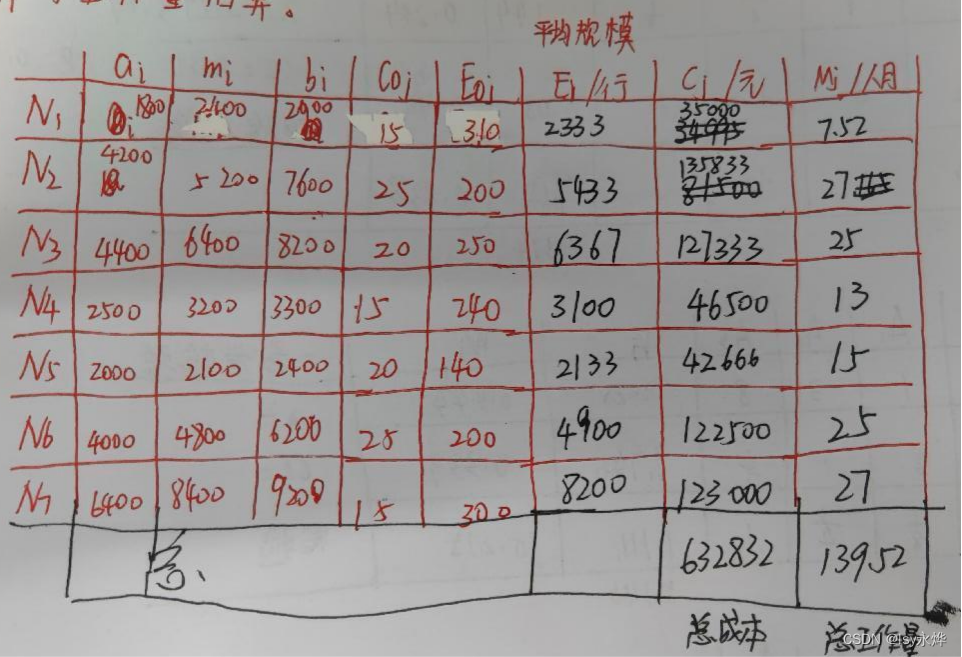 平均规模
ai mi bi Coj Eoj Ei/行 Ci/元 Mj/人月
N1 1800 2400 2900 15 310 2333 35000 7.52
N2 4200 5200 7600 25 200 5433 135833 27
N3 4400 6400 8200 20 250 6367 127333 25
N4 2500 3200 3300 15 240 3100 46500 13
N5 2000 2100 2400 20 140 2133 42666 15
N6 4000 4800 6200 25 200 4900 122500 25
N7 6400 8400 9200 15 300 8200 123000 27
632832 139.52
总成本 总工作量
CSDN @lsy永烨